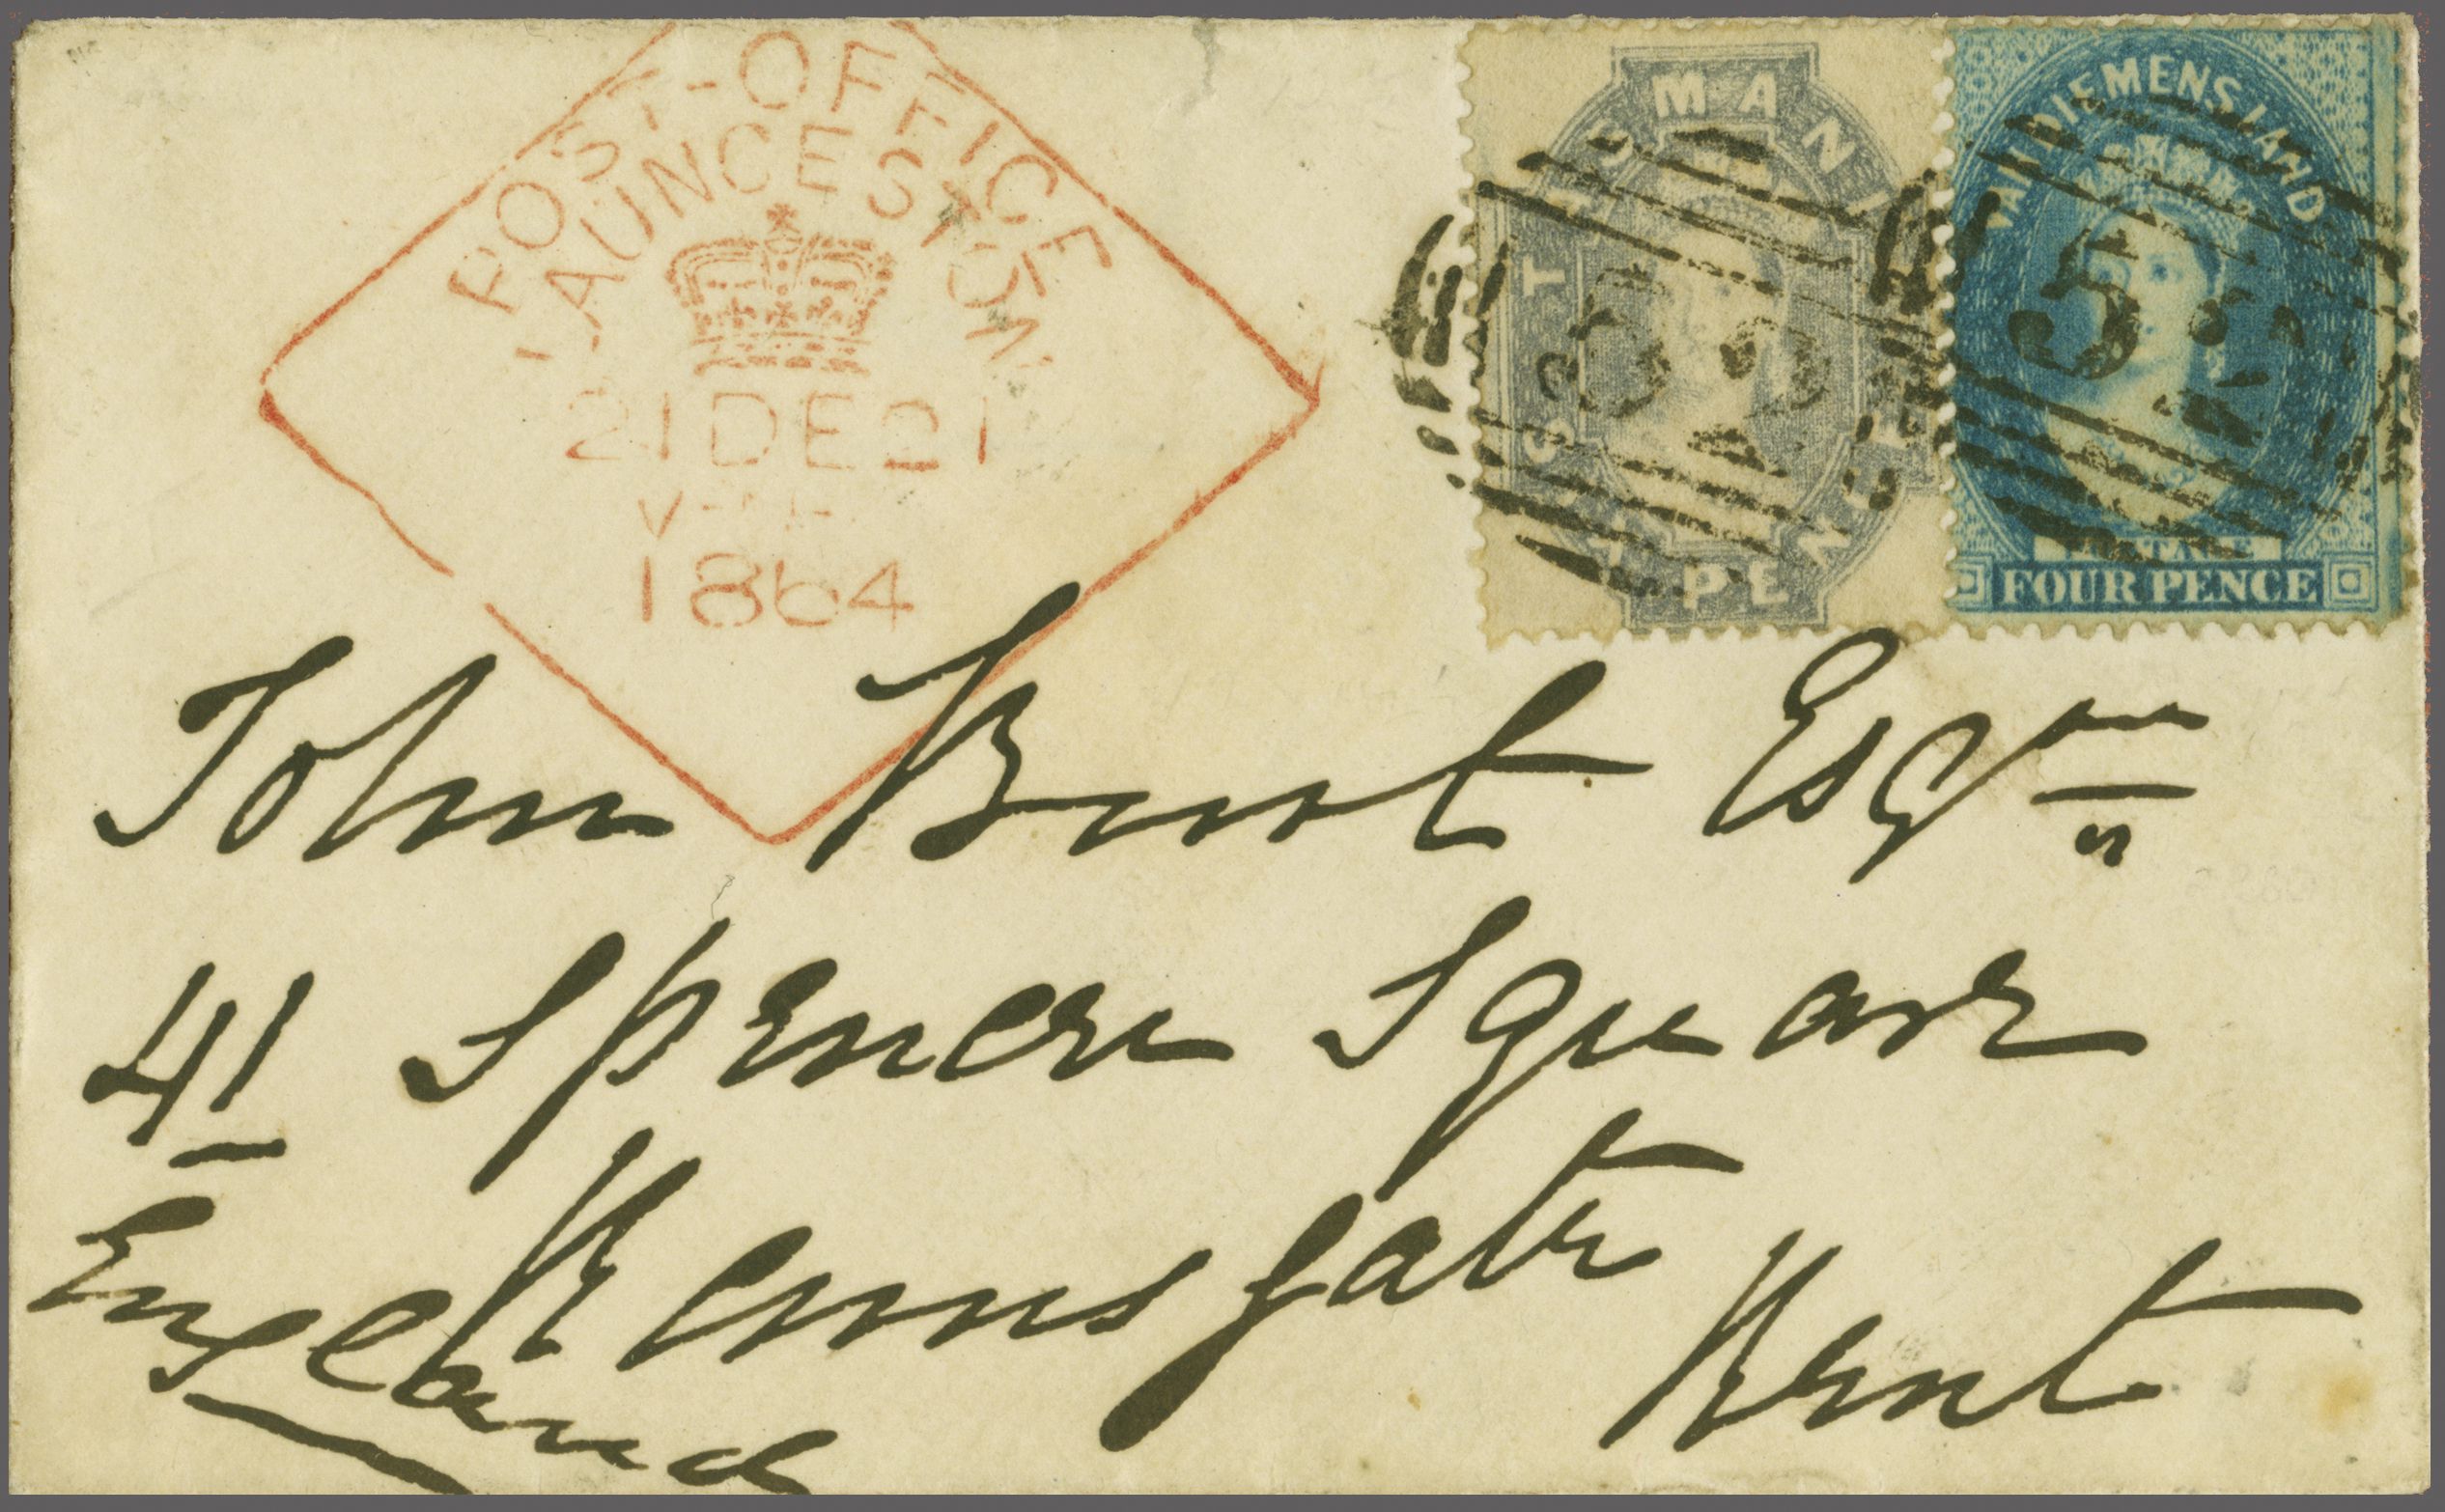 POST-OFFICE
LAUNCESTON
21 DE 21
1864
TASMANIA
SIX PENCE
VAN DIEMENS LAND
POSTAGE
FOUR PENCE
52
52
John Bent Esqre
41 Spencer Square
Ramsgate
Kent
England